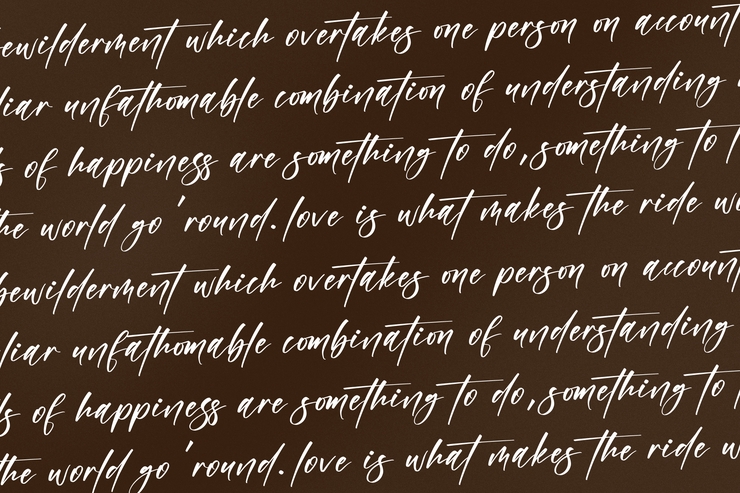 bewilderment which overtakes one person on account
liar unfathomable combination of understanding
ls of happiness are something to do, something to
the world go 'round. love is what makes the ride w
bewilderment which overtakes one person on account
liar unfathomable combination of understanding
ls of happiness are something to do, something to
the world go 'round. love is what makes the ride w